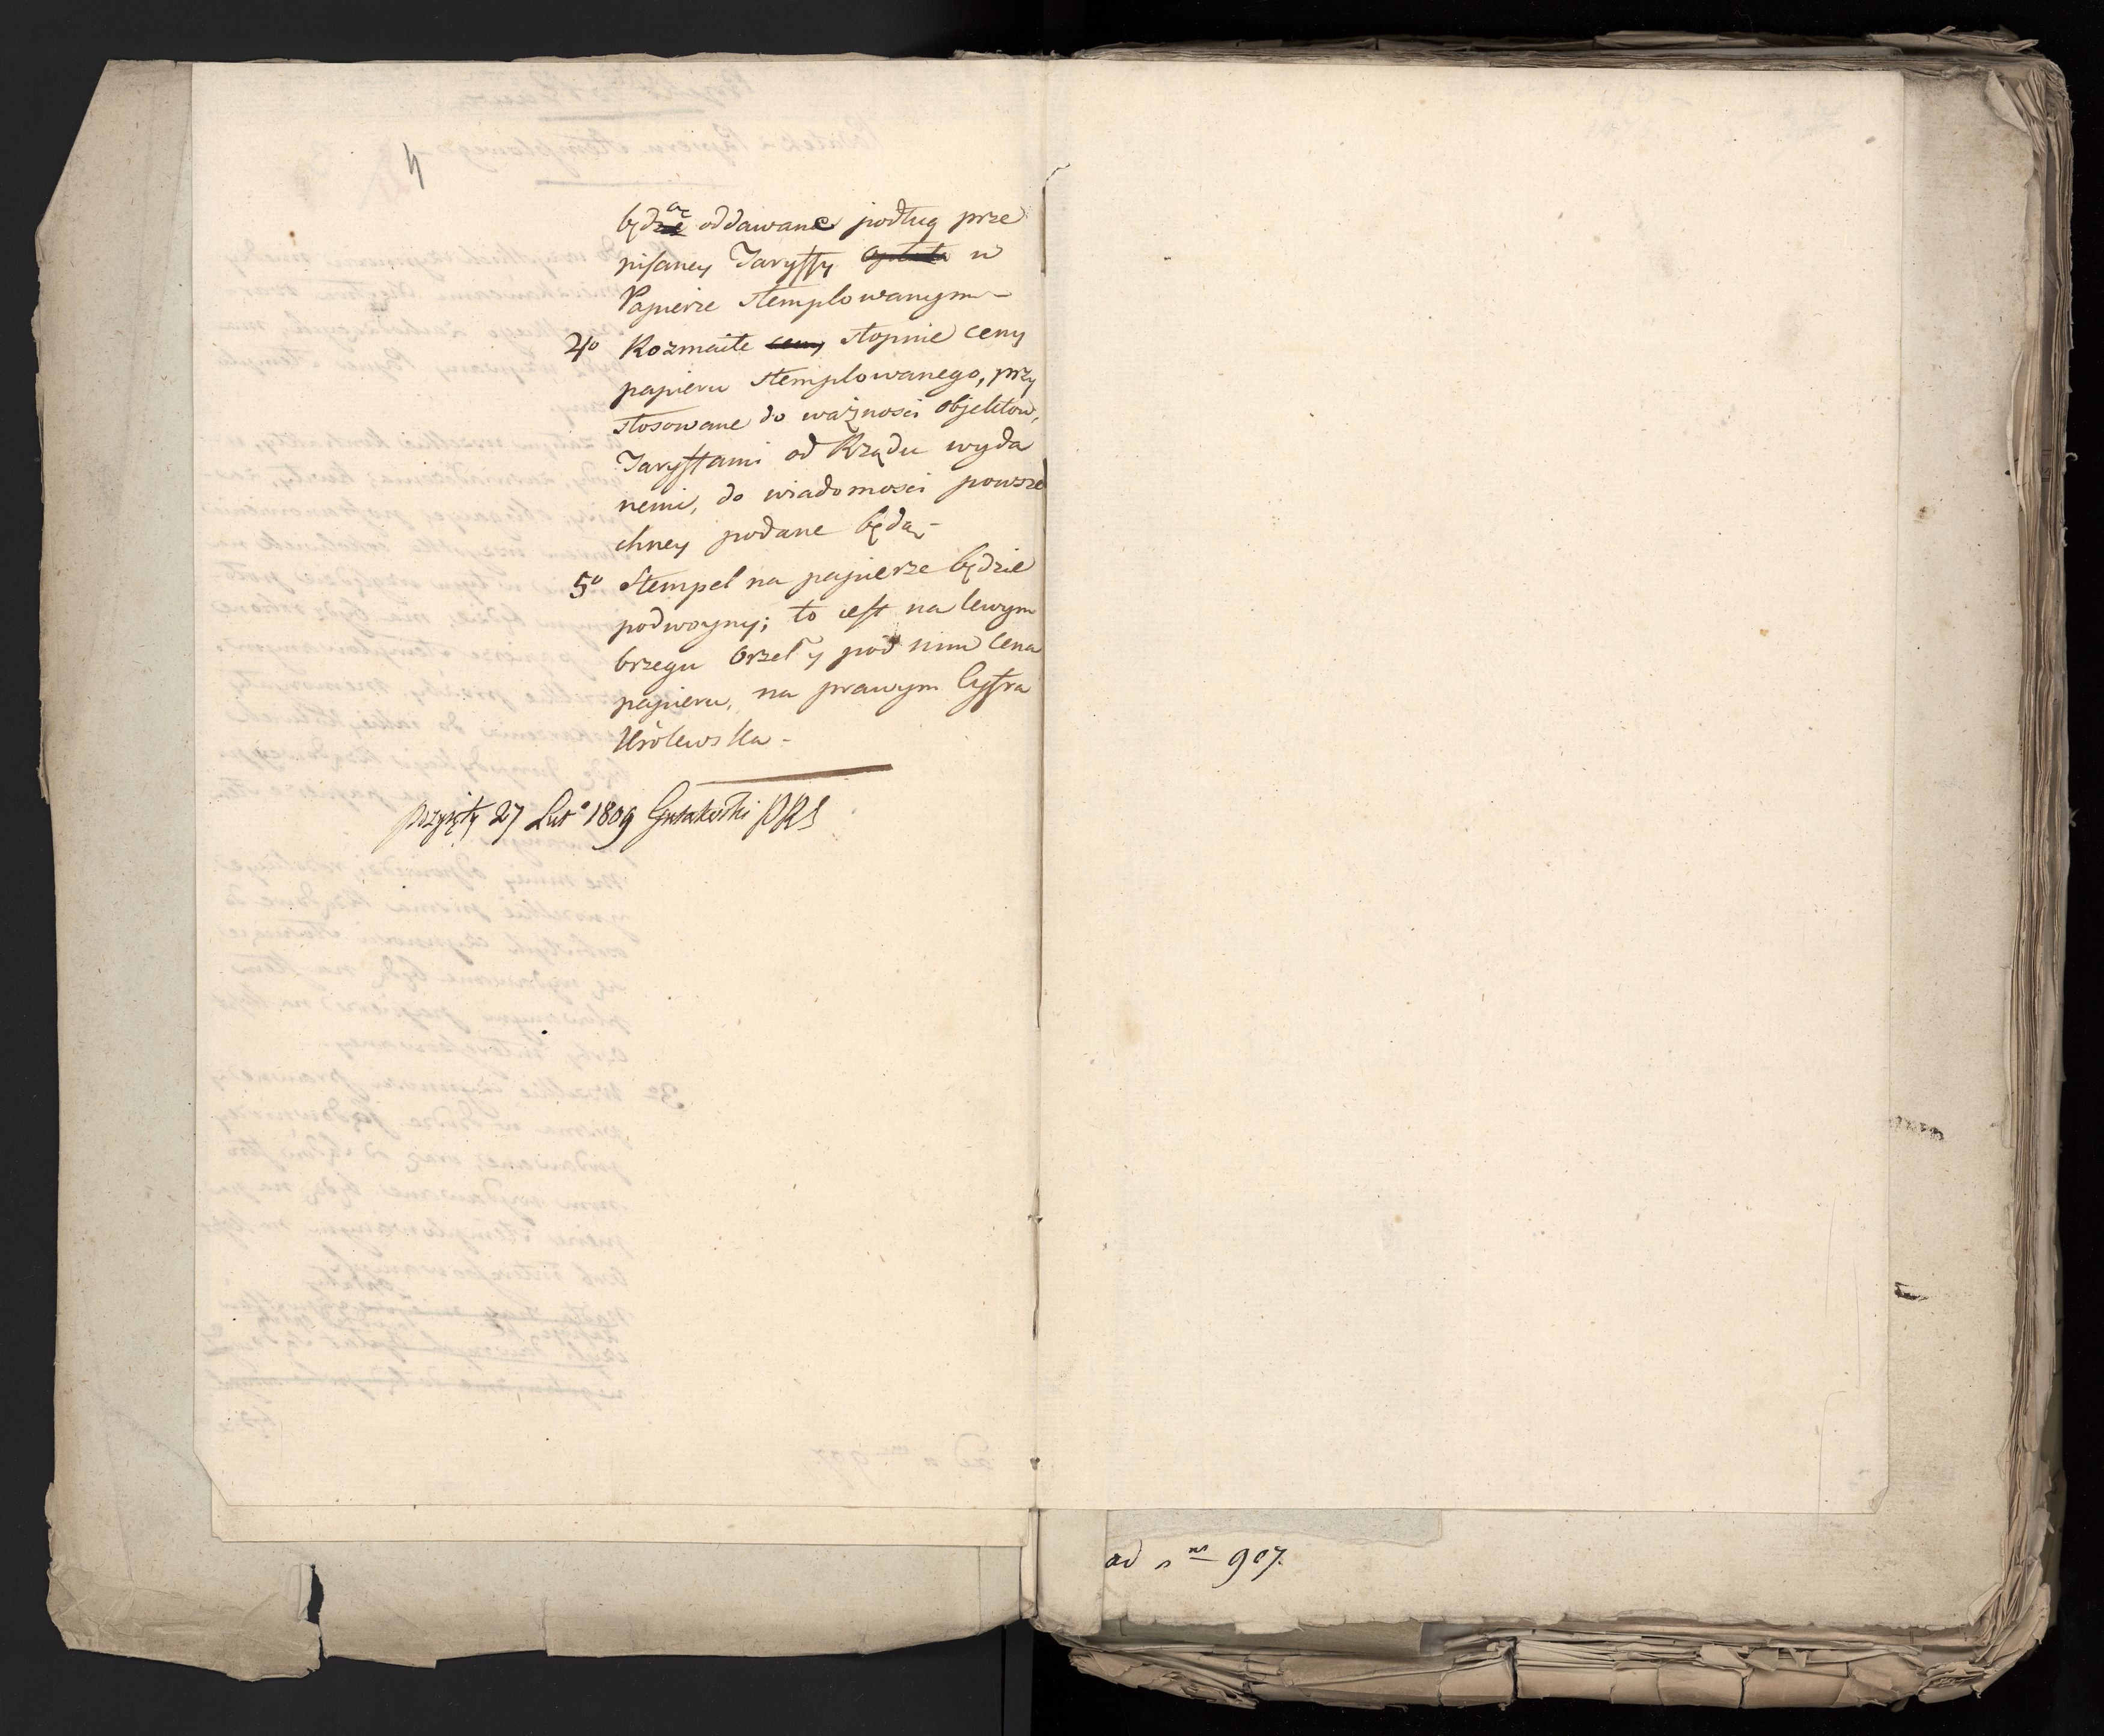 4
będą oddawane podług prze
pisaney Taryffy opłata w
Papierze stemplowanym –
4o Rozmaite ceny stopnie ceny
papieru stemplowanego, przy
stosowane do ważności objektow,
Taryffami od Rządu wyda
nemi, do wiadomości powsze
chney podane będą –
5o Stempel na papierze będzie
podwoyny; to iest na lewym
brzegu Orzeł y pod nim cena
papieru, na prawym Cyfra
Królewska –
przyięty 27 Lut° 1809 Gutakowski PRS
ad nm 907.